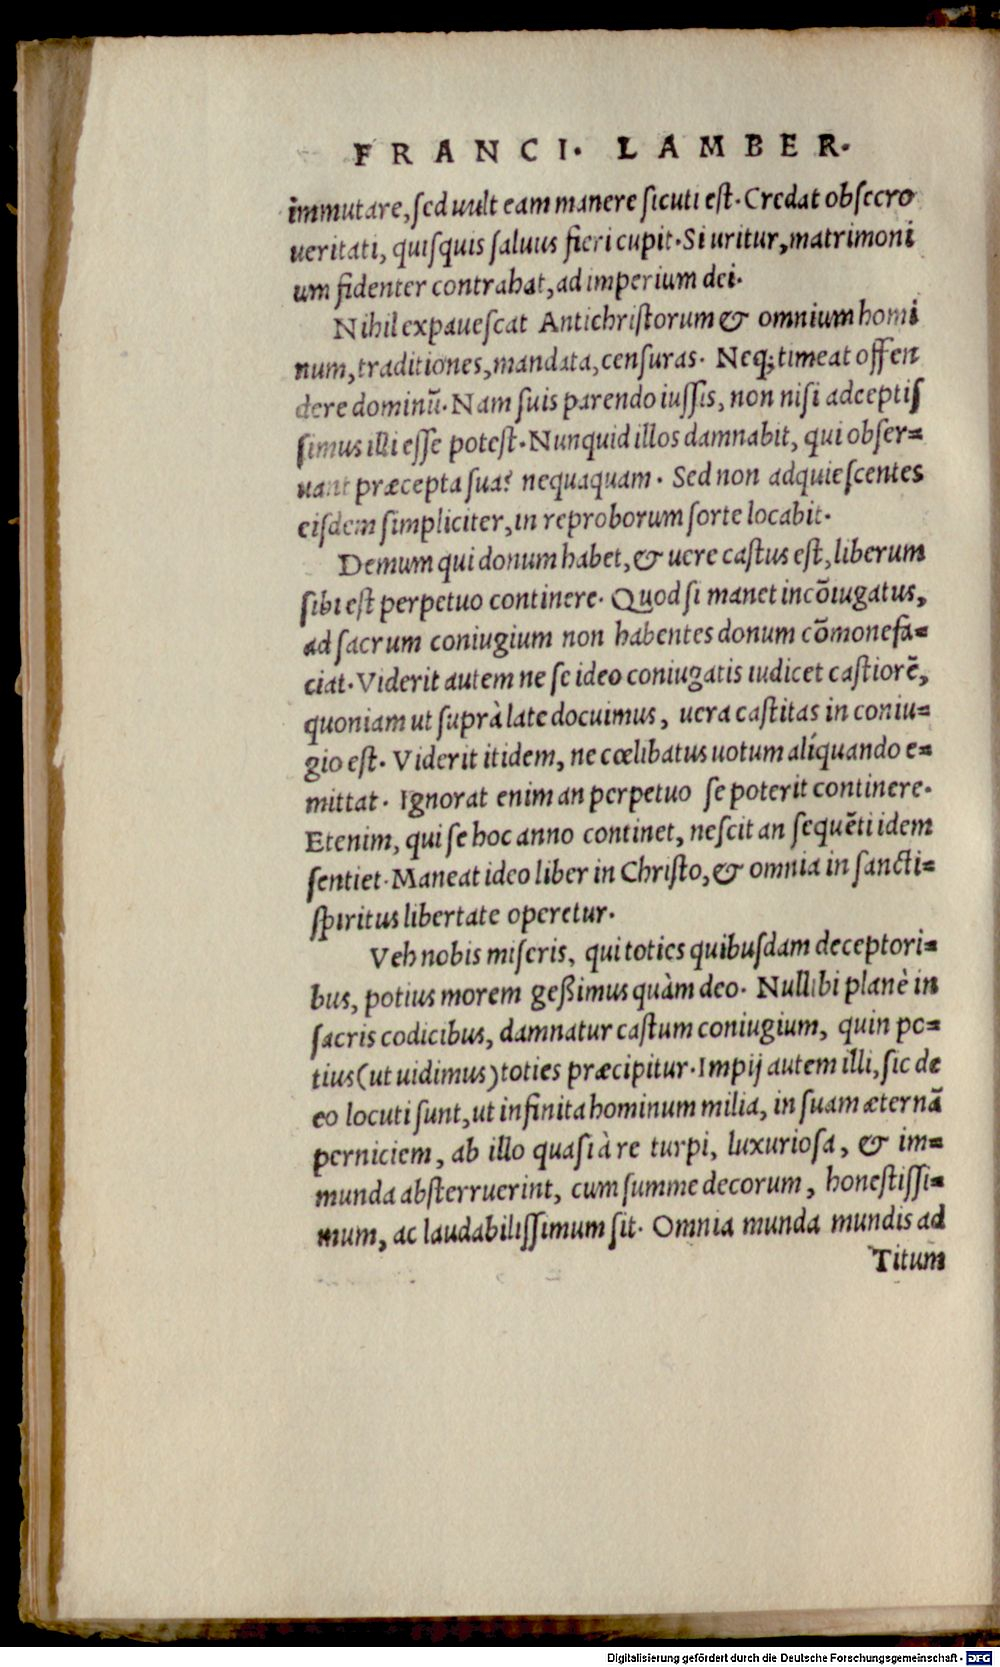 FRANCI. LAMBER.
immutare, ſed uult eam manere ſicuti eſt. Credat obſecro
ueritati, quiſquis ſaluus fieri cupit. Si uritur, matrimoni
um fidenter contrahat, ad imperium dei.
Nihil expaueſcat Antichriſtorum & omnium homi
num, traditiones, mandata, cenſuras. Neq; timeat offen
dere dominũ. Nam ſuis parendo iuſſis, non niſi adceptiſ
ſimus illi eſſe poteſt. Nunquid illos damnabit, qui obſer=
uant præcepta ſua? nequaquam. Sed non adquieſcentes
eiſdem ſimpliciter, in reproborum ſorte locabit.
Demum qui donum habet, & uere caſtus eſt, liberum
ſibi eſt perpetuo continere. Quod ſi manet incõiugatus,
ad ſacrum coniugium non habentes donum cõmonefa=
ciat. Viderit autem ne ſe ideo coniugatis iudicet caſtiorẽ,
quoniam ut ſuprà late docuimus, uera caſtitas in coniu=
gio eſt. Viderit itidem, ne cœlibatus uotum alíquando e=
mittat. Ignorat enim an perpetuo ſe poterit continere.
Etenim, qui ſe hoc anno continet, neſcit an ſequẽti idem
ſentiet. Maneat ideo liber in Chriſto, & omnia in ſancti=
ſpiritus libertate operetur.
Veh nobis miſeris, qui toties quibuſdam deceptori=
bus, potius morem geßimus quàm deo. Nullibi planè in
ſacris codicibus, damnatur caſtum coniugium, quin po=
tius (ut uidimus) toties præcipitur. Impij autem illi, ſic de
eo locuti ſunt, ut infinita hominum milia, in ſuam æternã
perniciem, ab illo quaſi à re turpi, luxurioſa, & im=
munda abſterruerint, cum ſumme decorum, honeſtiſſi=
mum, ac laudabiliſſimum ſit. Omnia munda mundis ad
Titum
Digitalisierung gefördert durch die Deutsche Forschungsgemeinschaft - DFG